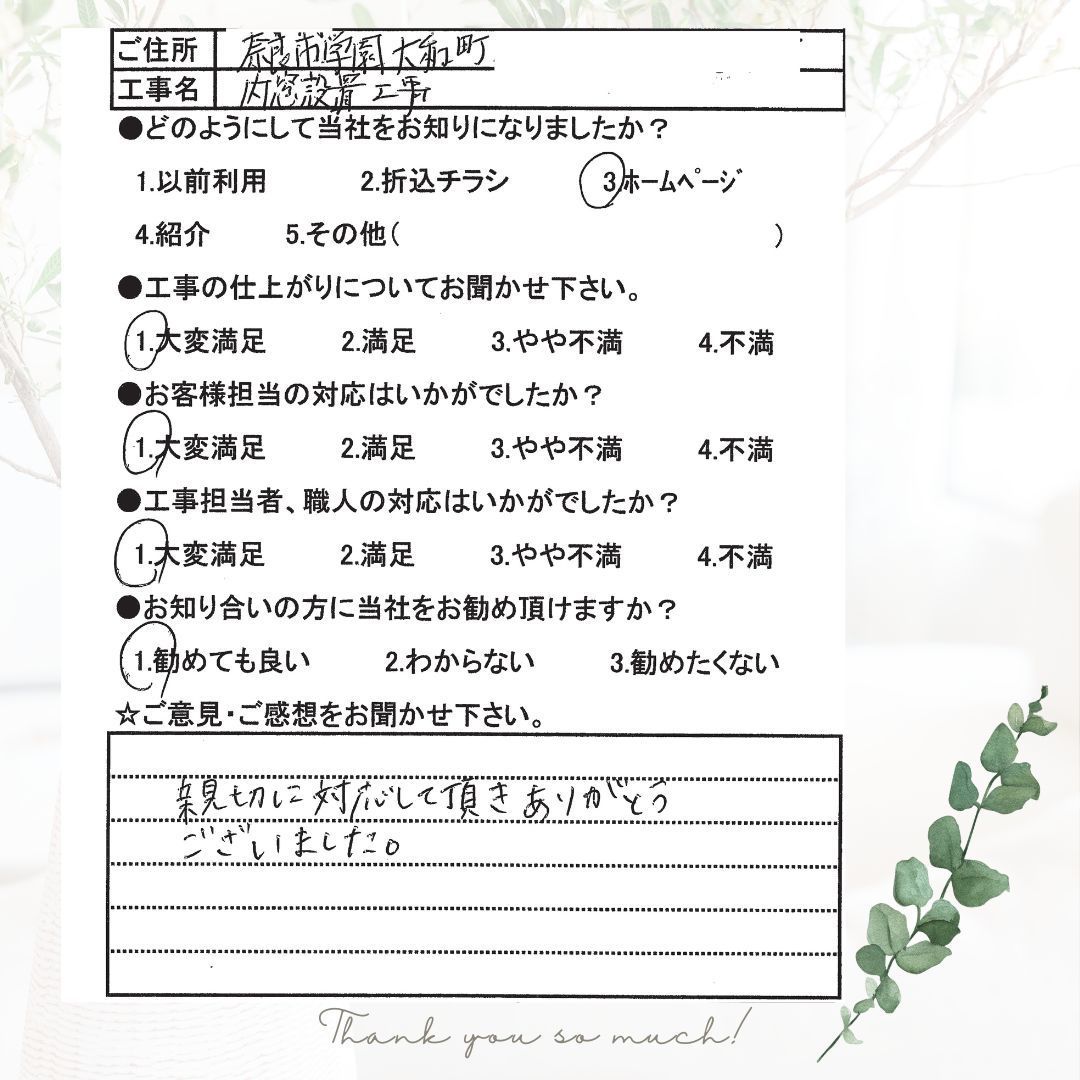 ご住所 奈良市学園大和町
工事名 内窓設置工事
●どのようにして当社をお知りになりましたか？
1.以前利用 2.折込チラシ 3.ホームページ
4.紹介 5.その他( )
●工事の仕上がりについてお聞かせ下さい。
1.大変満足 2.満足 3.やや不満 4.不満
●お客様担当の対応はいかがでしたか？
1.大変満足 2.満足 3.やや不満 4.不満
●工事担当者、職人の対応はいかがでしたか？
1.大変満足 2.満足 3.やや不満 4.不満
●お知り合いの方に当社をお勧め頂けますか？
1.勧めても良い 2.わからない 3.勧めたくない
☆ご意見・ご感想をお聞かせ下さい。
親切に対応して頂きありがとう
ございました。
Thank you so much!